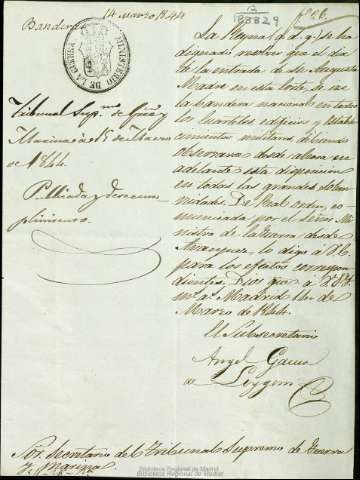 Banderas
14 Marzo 1844
13
188829
MINISTERIO DE LA GUERRA
La Reyna (q. d. g.) se ha
dignado resolver que el dia
de la entrada de Su Augusta
Madre en esta Corte, se ize
la bandera nacional en todos
los Cuarteles edificios y Estable
cimientos militares debiendo
observarse desde ahora en
adelante esta disposicion
en todas las grandes solem
nidades. De Real orden, co
municada por el Señor Mi
nistro de la Guerra desde
Aranjuez, lo digo á V.E.
para los efectos correspon
dientes. Dios gue. á V.E.
ms. as. Madrid 14 de
Marzo de 1844.
El Subsecretario
Angel Garcia
de Loygorri
Tribunal Supmo. de Grra. y
Marina á 15 de Marzo
de 1844.
Publicada y devuelva
plimiento.
Sor. Secretario del Tribunal Supremo de Guerra
y Marina.
Biblioteca Regional de Madrid